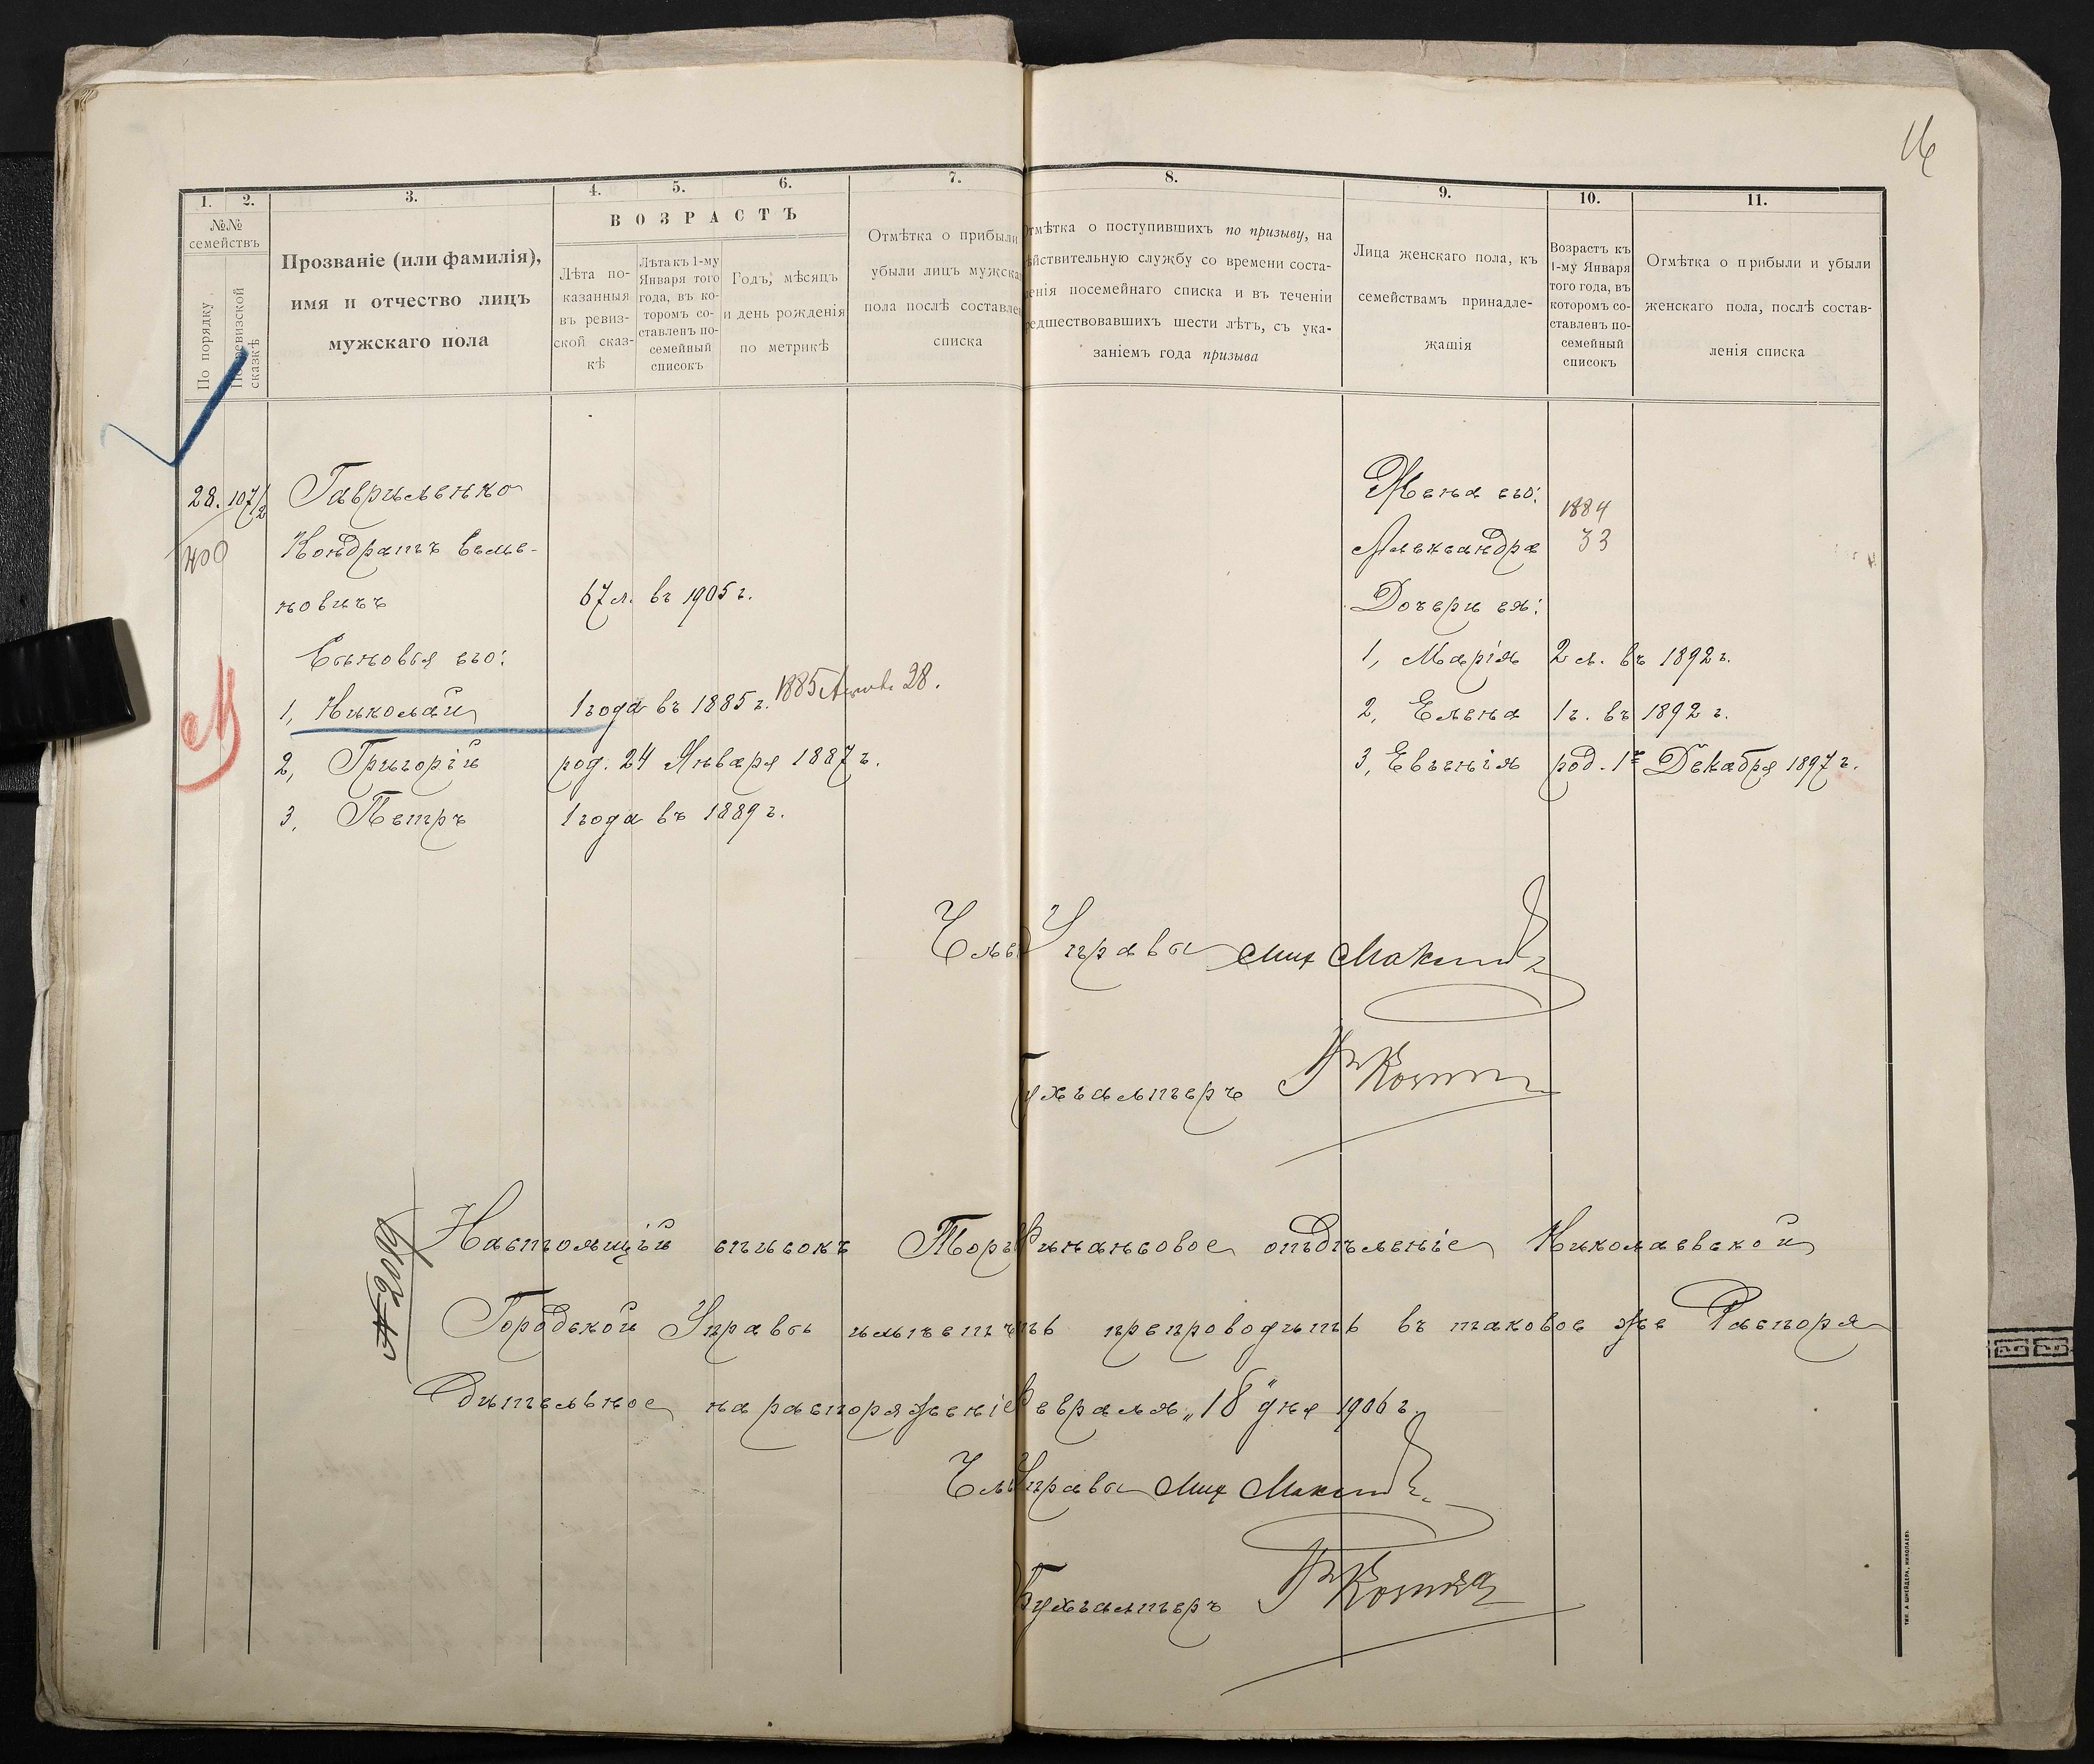 16
1. 2. 3. 4. 5. 6. 7. 8. 9. 10. 11.
№№ семействъ
По порядку
По ревизской сказкѣ
Прозваніе (или фамилія),
имя и отчество лицъ
мужскаго пола
ВОЗРАСТЪ
Лѣта по-
казанныя
въ ревиз-
ской сказ-
кѣ
Лѣта къ 1-му
Января того
года, въ ко-
торомъ со-
ставленъ по-
семейный
списокъ
Годъ, мѣсяцъ
и день рожденія
по метрикѣ
Отмѣтка о прибыли
убыли лицъ мужска
пола послѣ составле
списка
Отмѣтка о поступившихъ по призыву, на
йствительную службу со времени соста-
ленія посемейнаго списка и въ теченіи
редшествовавшихъ шести лѣтъ, съ ука-
заніемъ года призыва
Лица женскаго пола, къ
семействамъ принадле-
жащія
Возрастъ къ
1-му Января
того года, въ
которомъ со-
ставленъ по-
семейный
списокъ
Отмѣтка о прибыли и убыли
женскаго пола, послѣ состав-
ленія списка
28. 107/2 Гавриленко
400
Кондратъ Семе-
новичъ 67 л. въ 1905 г.
Сыновья его:
1, Николай 1 года въ 1885 г. 1885 28.
2, Григорій род. 24 Января 1887 г.
3, Петръ 1 года въ 1889 г.
Жена его:
1884
Александра 33
Дочери ея:
1, Марія 2 л. въ 1892 г.
2, Елена 1 г. въ 1892 г.
3, Евгенія род. 1го Декабря 1897 г.
Членъ Управы Мих
Бухгалтеръ
№ 2089
Настоящій списокъ Торг Финансовое отдѣленіе Николаевской
Городской Управы имѣетъ честь препроводить въ таковое же Распоря
дительное на распоряженіе Февраля „18" дня 1906 г.
Членъ Управы Мих
Бухгалтеръ
ТИП. А ШНЕЙДЕРА, НИКОЛАЕВЪ.